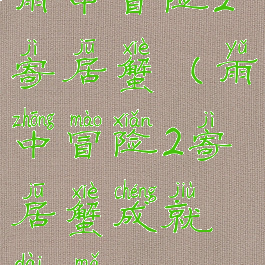 雨中冒险2
jì jū xiè yǔ
寄居蟹（雨
zhōng mào xiǎn jì
中冒险2寄
jū xiè chéng jiù
居蟹成就
dài mǎ